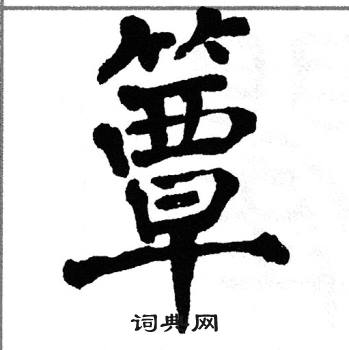 簟
词典网